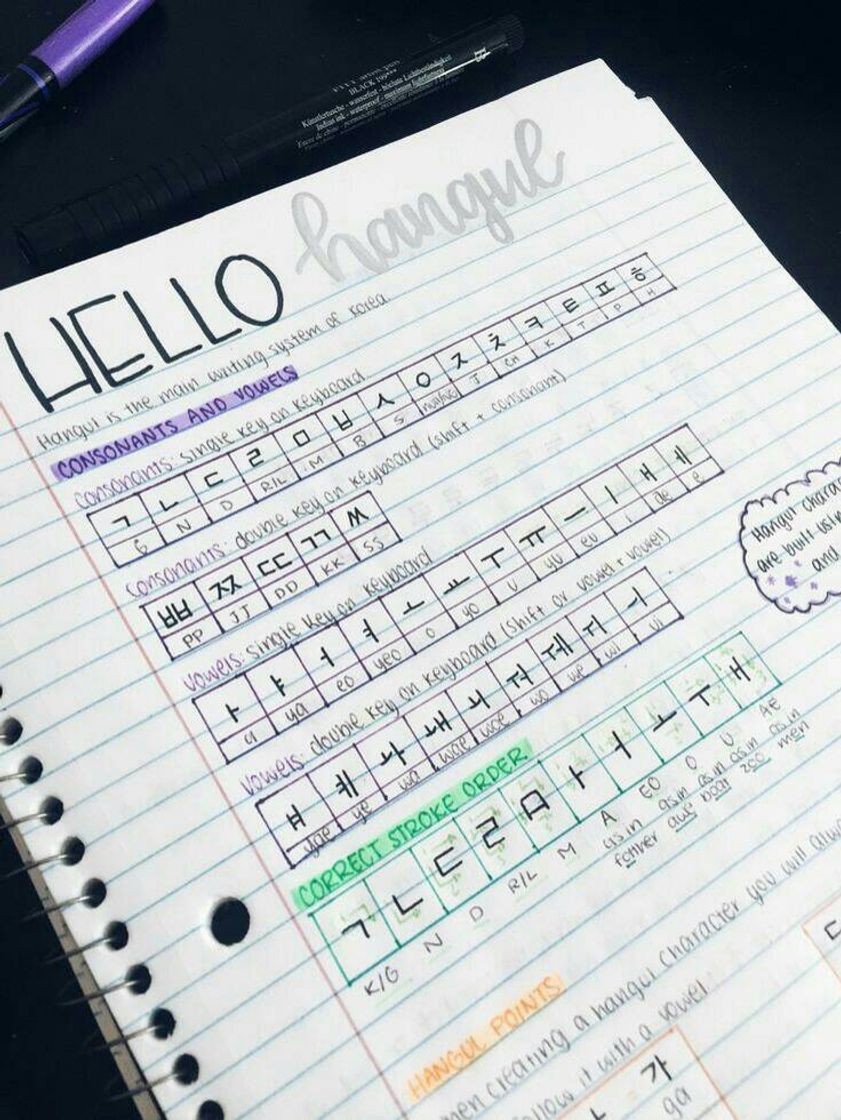 BLACK 199***
Künstlertusche - wasserfest - höchste Lichtbeständigkeit
Indian ink - waterproof - maximum lightfastness
HELLO hangul
Hangul is the main writing system of Korea.
CONSONANTS AND VOWELS
consonants: single key on keyboard
ㄱ ㄴ ㄷ ㄹ ㅁ ㅂ ㅅ ㅇ ㅈ ㅊ ㅋ ㅌ ㅍ ㅎ
G N D R/L M B S J CH K T P H
consonants: double key on keyboard (shift + consonant)
ㅃ ㅉ ㄸ ㄲ ㅆ
PP JJ DD KK SS
vowels: single key on keyboard
ㅏ ㅑ ㅓ ㅕ ㅗ ㅛ ㅜ ㅠ ㅡ ㅣ ㅐ ㅔ
a ya eo yeo o yo u yu eu i ae e
vowels: double key on keyboard (shift or vowel + vowel)
ㅒ ㅖ ㅘ ㅙ ㅚ ㅝ ㅞ ㅟ ㅢ
yae ye wa wae woe wo we wi ui
CORRECT STROKE ORDER
ㄱ ㄴ ㄷ ㄹ ㅁ ㅏ ㅓ ㅗ ㅜ ㅐ
K/G N D R/L M A EO O U AE
as in as in as in as in as in
father awe boat zoo men
Hangul charac
are built usin
and
HANGUL POINTS
hen creating a hangul character you will alwa
follow it with a vowel.
ㄷ
가
ga